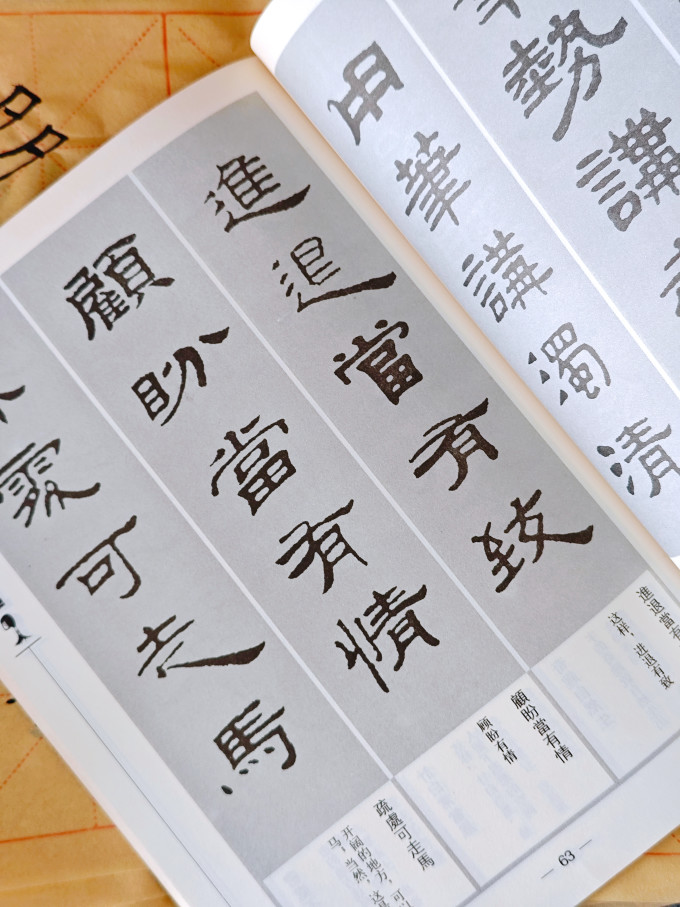 勢講
用筆講濁清
進退當有致
顧盼當有情
處可走馬
進退當有
这样，进退有致
顧盼當有情
顾盼有情
疏處可走馬
开阔的地方，可
马，当然，这
— 63 —